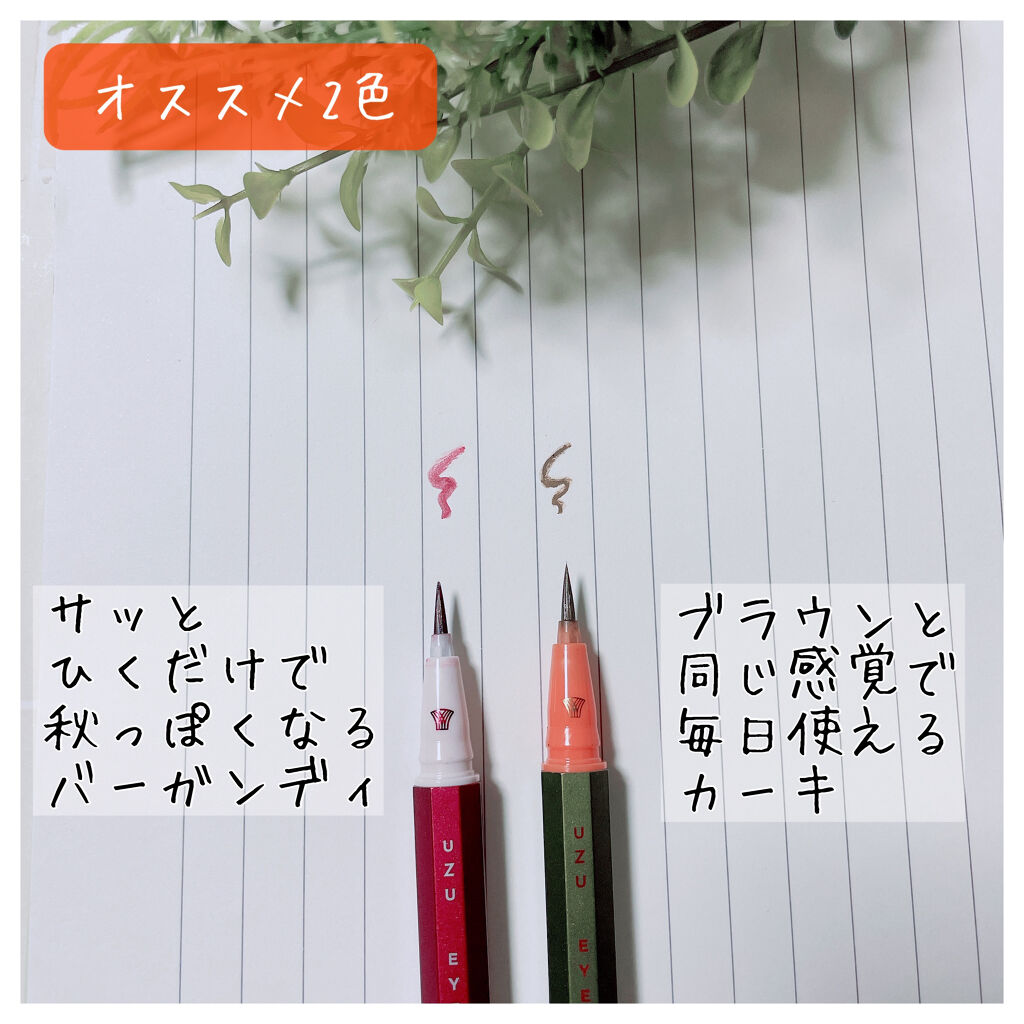 オススメ2色
サッと
ひくだけで
秋っぽくなる
バーガンディ
ブラウンと
同じ感覚で
毎日使える
カーキ
UZU EYE
UZU EYE